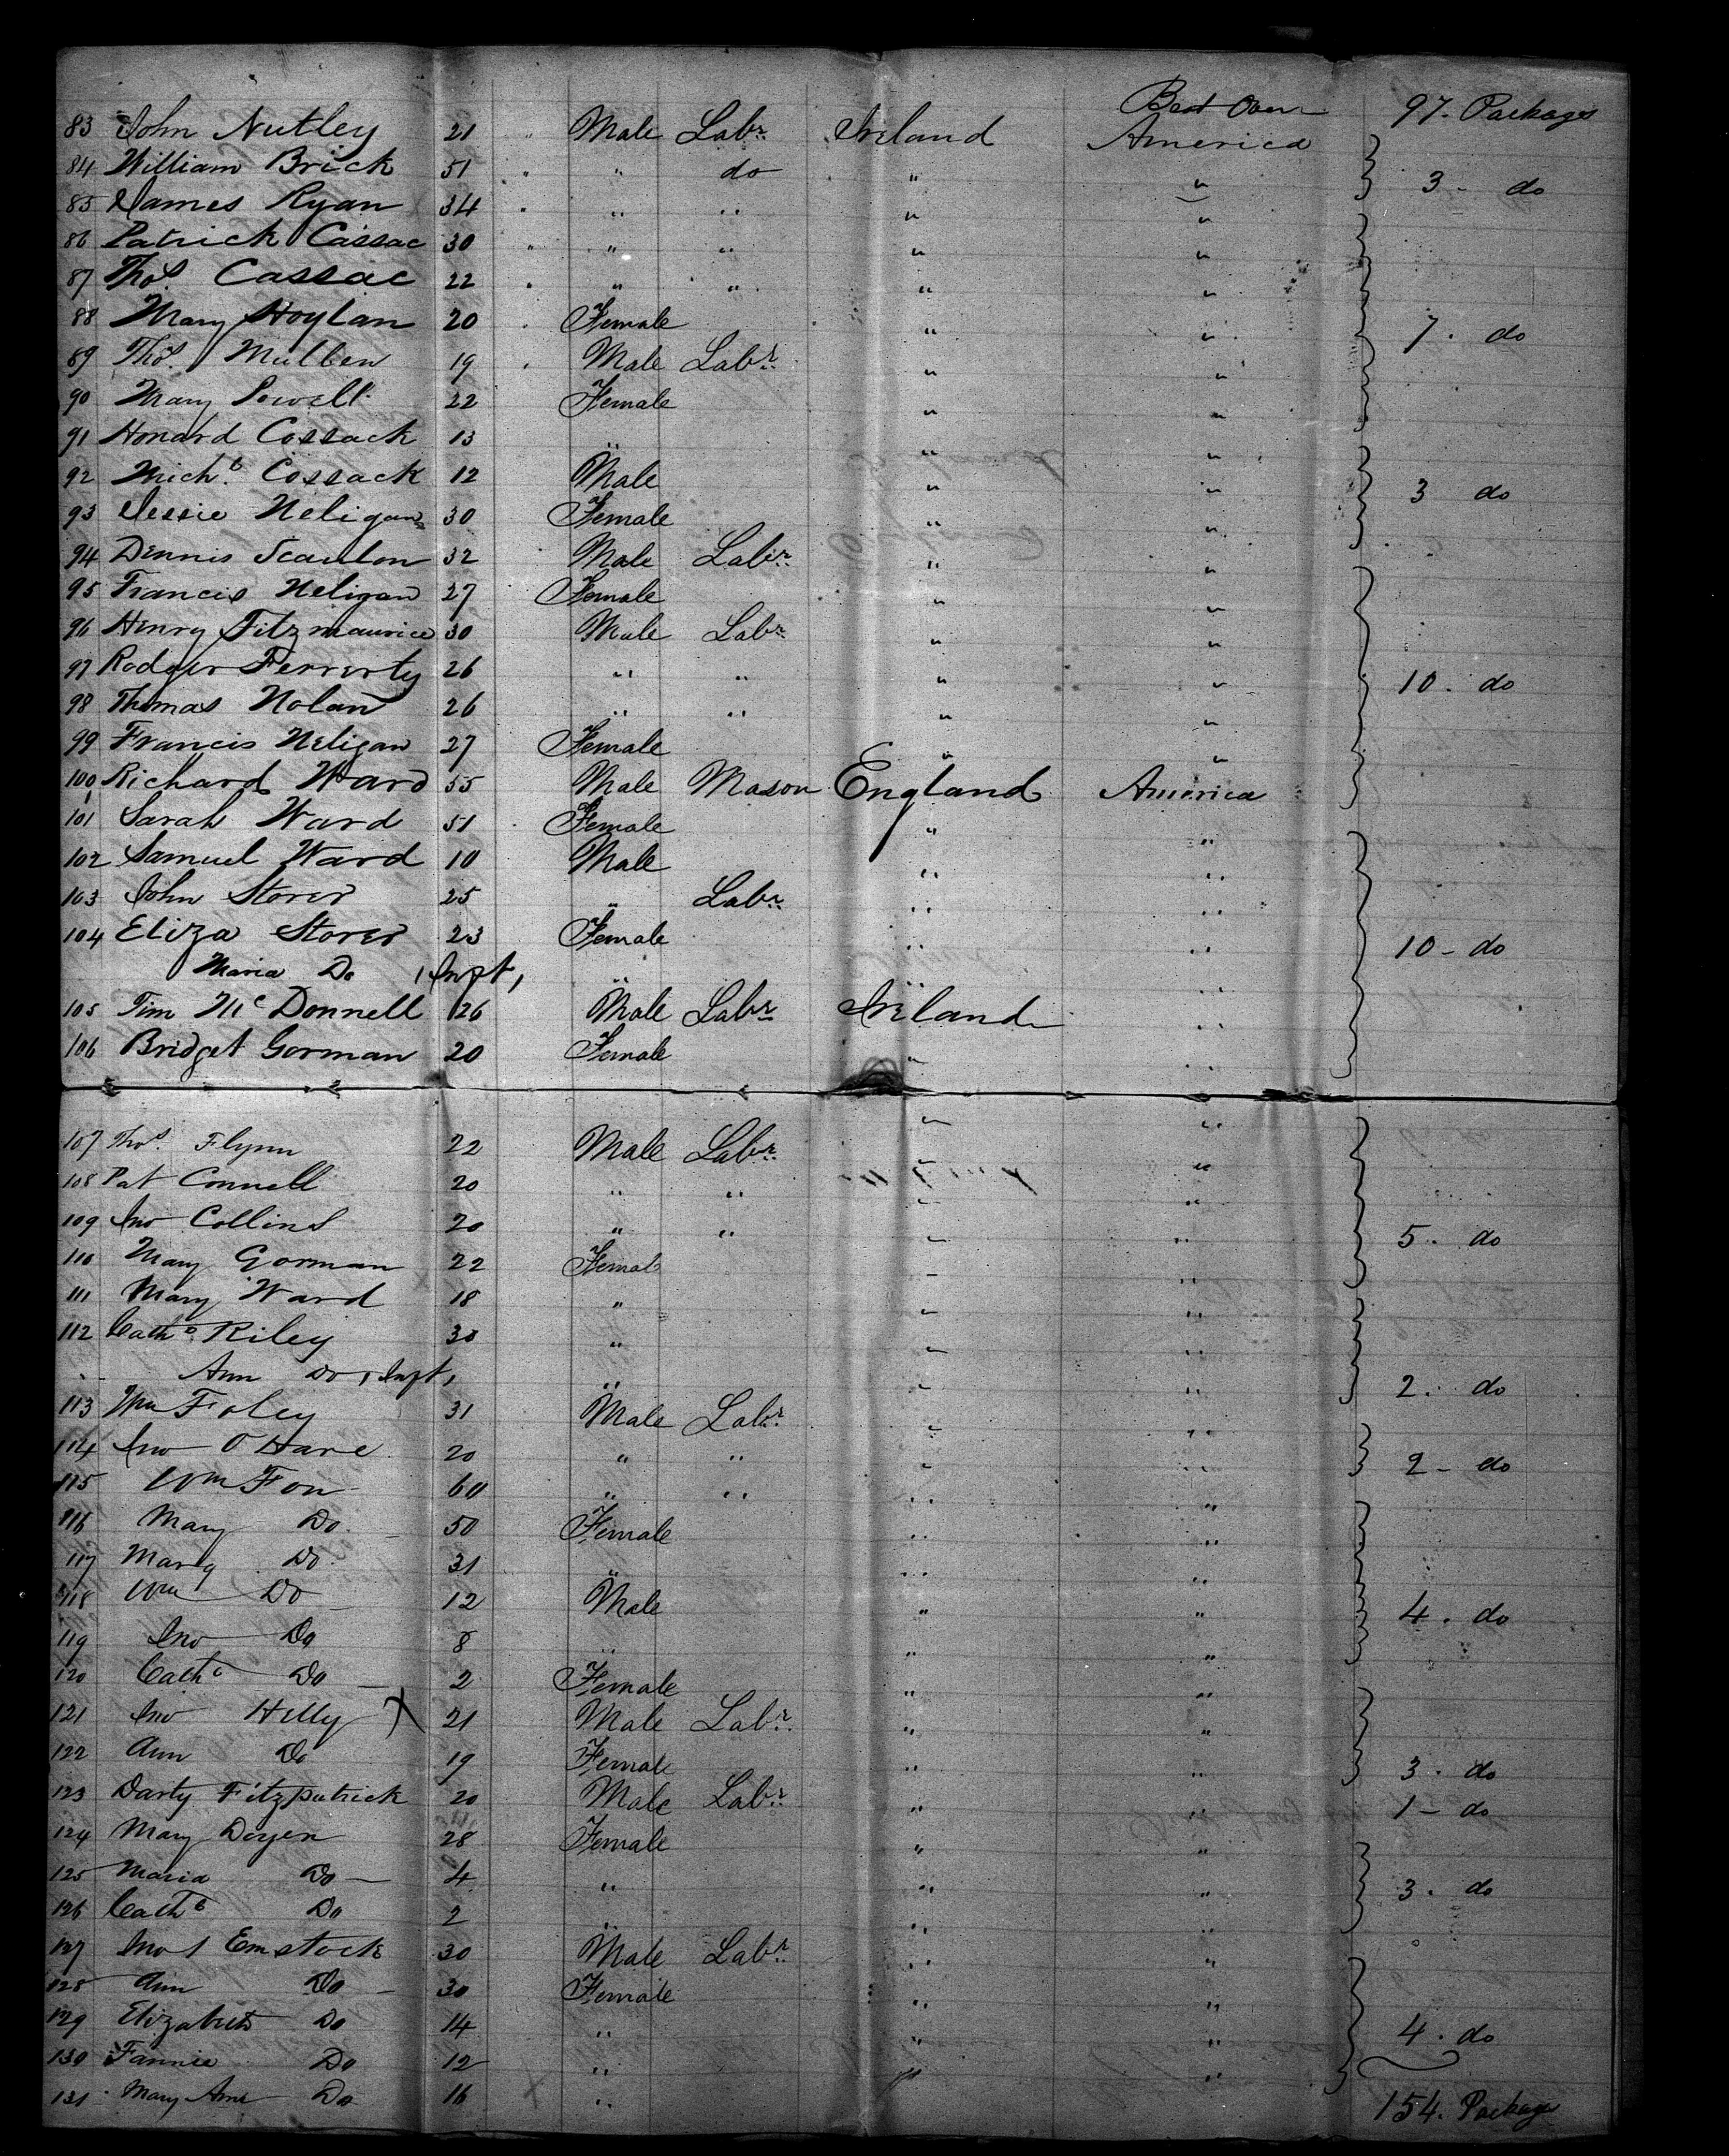 97. Packages
83 John Nutley 21 " Male Labr. Ireland America
84 William Brick 51 " " do " " 3 - do
85 James Ryan 34 " " " " "
86 Patrick Cassac 30 " " " " "
87 Thos. Cassac 22 " " " " "
88 Mary Hoylan 20 " Female " " 7. do
89 Thos. Mullen 19 " Male Labr. " "
90 Mary Powell 22 Female " "
91 Honard Cossack 13 " " "
92 Michl. Cossack 12 Male " " 3 do
93 Jessie Neligan 30 Female " "
94 Dennis Scanlon 32 Male Labr. " "
95 Francis Neligan 27 Female " "
96 Henry Fitzmaurice 30 Male Labr. " "
97 Rodger Ferrerty 26 " " " " 10. do
98 Thomas Nolan 26 " " " "
99 Francis Neligan 27 Female " "
100 Richard Ward 55 Male Mason England America
101 Sarah Ward 51 Female " "
102 Samuel Ward 10 Male " "
103 John Storer 25 " Labr. " "
104 Eliza Storer 23 Female " " 10 - do
Maria Do 1 Inft, " " "
105 Tim McDonnell 26 Male Labr Ireland "
106 Bridget Gorman 20 Female " "
107 Thos. Flynn 22 Male Labr. " "
108 Pat Connell 20 " " " "
109 Jno Collins 20 " " " " 5. do
110 Mary Gorman 22 Female " "
111 Mary Ward 18 " " "
112 Cathe Riley 30 " " "
Ann Do 1 Inft, " " " 2. do
113 Wm Foley 31 Male Labr. " "
114 Jno O'Hare 20 " " " " 2 - do
115 Wm Fon 60 " " " "
116 Mary Do 50 Female " "
117 Mary Do 31 " " "
118 Wm Do 12 Male " " 4. do
119 Jno Do 8 " " "
120 Cathe Do 2 Female " "
121 Jno Helly X 21 Male Labr. " "
122 Ann Do 19 Female " " 3. do
123 Darty Fitzpatrick 20 Male Labr. " " 1 - do
124 Mary Doyen 28 Female " "
125 Maria Do 4 " " " 3. do
126 Cathe Do 2 " " "
127 Jno Emstock 30 Male Labr. " "
128 Ann Do 30 Female " "
129 Elizabeth Do 14 " " " 4. do
130 Fannie Do 12 " " "
131 Mary Ann Do 16 " 154. Packages